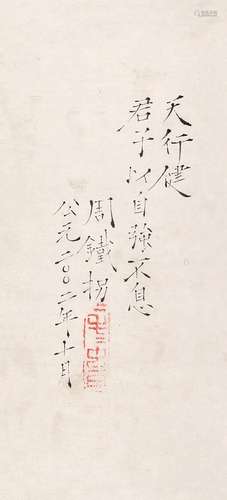 天行健
君子以自強不息
周鐵拐
公元二〇〇二年十月